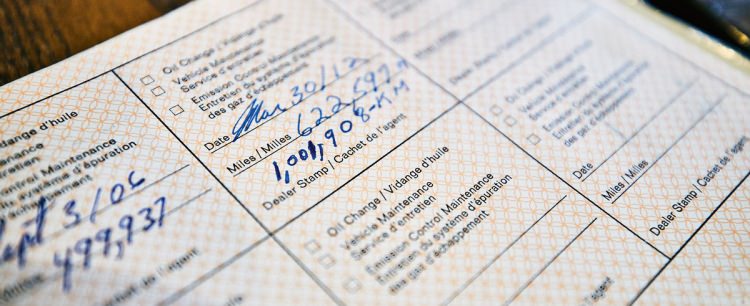 Oil Change / Vidange d'huile
Vehicle Maintenance
Service d'entretien
Emission Control Maintenance
Entretien du système d'épuration
des gaz d'échappement
Date Mar 30/12
Miles / Milles 622,597 m
1,001,908-KM
Dealer Stamp / Cachet de l'agent
Vidange d'huile
Control Maintenance
système d'épuration
échappement
Sept 3/06
499,937
Cachet de l'agent
Oil Change / Vidange d'huile
Vehicle Maintenance
Service d'entretien
Emission Control Maintenance
Entretien du système d'épuration
des gaz d'échappement
Oil Change / Vidange d'huile
Vehicle Maintenance
Service d'entretien
Emission Control Maintenance
Entretien du système d'épuration
des gaz d'échappement
Date
Miles / Milles
Dealer Stamp / Cachet de l'agent